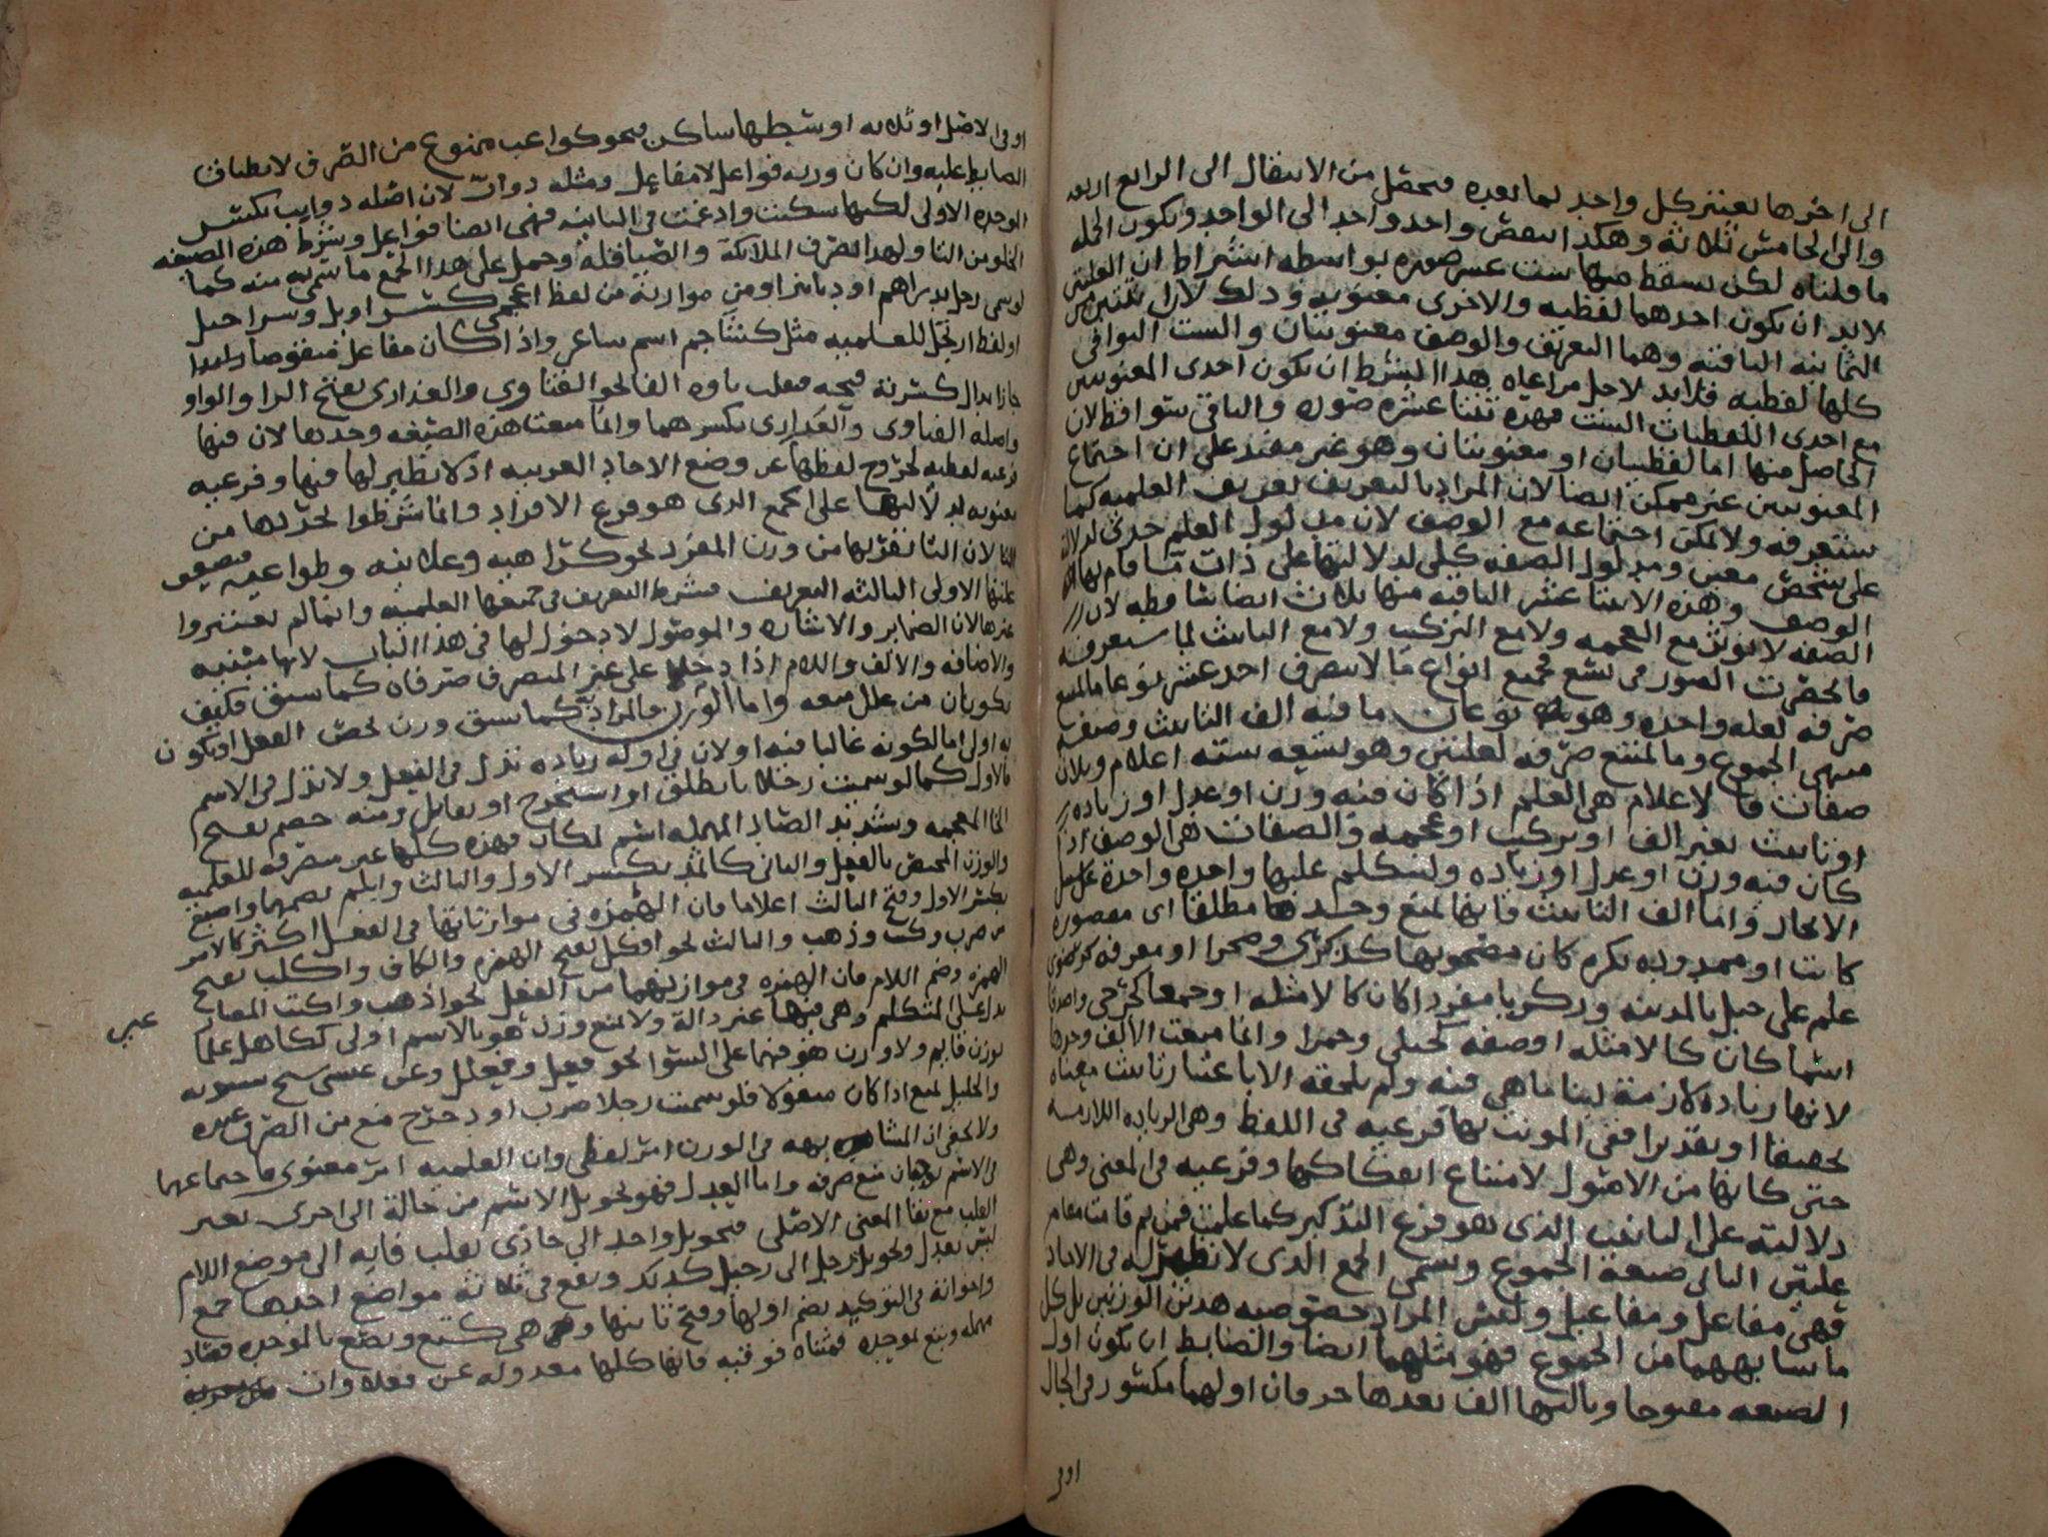 الى اخرها يعتبر كل واحد لما بعده فيحصل من الانتقال الى الرابع اربعه
والى الخامس ثلاثة وهكذا البعض واحد واحد الى الواحد وتكون الجمله
ما قلناه لكن يسقط منها ست عشر صوره بواسطه اشتراط ان العلتين
لابد ان تكون احدهما لفظيه والاخرى معنويه وذلك لان اثنتين من
الثمانيه الباقيه وهما التعريف والوصف معنويتان والست البواقي
كلها لفظيه فلابد لاجل مراعاه هذا الشرط ان تكون احدى المعنويتين
مع احدى اللفظيات الست فهذه ثنتا عشره صوره والباقي سواقط لان
الحاصل منها اما لفظيتان او معنويتان وهو غير مفيد على ان اجتماع
المعنويتين غير ممكن ايضا لان المراد بالتعريف تعريف العلميه كما
ستعرفه ولا يمكن اجتماعه مع الوصف لان مدلول العلم جزئي لدلالته
على شخص معين ومدلول الصفه كلي لدلالتها على ذات ما قام بها
الوصف وهذه الاثنتا عشر الباقيه منها ثلاث ايضا ساقطه لان
الصفه لا تكون مع العجمه ولا مع التركيب ولا مع التانيث لما ستعرفه
فانحصرت الصور في تسع فجميع انواع ما لا ينصرف احد عشر نوعا ما امتنع
صرفه لعله واحده وهو نوعان ما فيه الف التانيث وصيغة
منتهى الجموع وما امتنع صرفه لعلتين وهو تسعه سته اعلام وثلاث
صفات فالاعلام هي العلم اذا كان فيه وزن او عدل او زياده
او تانيث بغير الف او تركيب او عجمه والصفات هي الوصف اذا
كان فيه وزن او عدل او زياده ولنتكلم عليها واحده واحدة على سبيل
الايجاز واما الف التانيث فانها تمنع وحدها مطلقا اى مقصوره
كانت او ممدوده نكره كان مصحوبها كذكرى وصحرا او معرفه كرضوى
علم على جبل بالمدينه وزكريا مفردا كان كالامثله او جمعا كجرحى واصدقا
اسما كان كالامثله او صفه كحبلى وحمرا وانما منعت الالف وحدها
لانها زياده لازمة لبناء ما هي فيه ولم تلحقه الا باعتبار تانيث معناه
تحقيقا او تقديرا ففي المونث بها فرعيه في اللفظ وهي الزياده اللازمه
حتى كانها من الاصول لامتناع انفكاكها وفرعيه في المعنى وهي
دلالته على التانيث الذى هو فرع التذكير كما علمت فمن ثم قامت مقام
علتين الثاني صيغة الجموع ويسمى الجمع الذى لا نظير له في الاحاد
فهي مفاعل ومفاعيل وليس المراد خصوصيه هذين الوزنين بل كل
ما شابههما من الجموع فهو مثلهما ايضا والضابط ان يكون اول
الصيغه مفتوحا وثالثها الف بعدها حرفان اولهما مكسور في الحال
او في
او في الاصل او ثلاثه اوسطها ساكن فنحو كواعب ممنوع من الصرف لانطباق
الضابط عليه وان كان وزنه فواعل لا مفاعل ومثله دواب لان اصله دوابب بكسر
الموحده الاولى لكنها سكنت وادغمت في الثانيه فهي ايضا فواعل وشرط هذه الصيغه
الخلو من التا ولهذا انصرف الملائكة والصياقلة وحمل على هذا الجمع ما سمي به منه كما
لو سمى رجل بدراهم او دنانير او من موازنة من لفظ اعجمي كسراويل وشراحيل
او لفظ ارتجل للعلميه مثل كشاجم اسم شاعر واذا كان مفاعل منقوصا
جاز ابدال كسرته فتحه فتقلب ياوه الفا نحو الفتاوى والعذارى بفتح الرا والواو
واصله الفتاوى والعذارى بكسرهما وانما منعت هذه الصيغه وحدها لان فيها
فرعيه لفظيه لخروج لفظها عن وضع الاحاد العربيه اذ لا نظير لها فيها وفرعيه
معنويه لدلالتها على الجمع الذى هو فرع الافراد وانما شرطوا تجردها من
التا لان التا تقربها من وزن المفرد نحو كراهيه وعلانيه وطواعيه فتضعف
علتها الاولى الثالثه التعريف وشرط التعريف في جميعها العلميه وانما لم يعتبروا
غيرها لان الضماير والاشاره والموصول لا دخول لها في هذا الباب لانها مبنيه
والاضافه والالف واللام اذا دخلا على غير المنصرف صرفاه كما سبق فكيف
يكونان من علل منعه واما الوزن فالمراد به كما سبق وزن يخص الفعل او يكون
به اولى اما لكونه غالبا فيه او لان في اوله زياده تدل في الفعل ولا تدل في الاسم
فالاول كما لو سميت رجلا بانطلق او استخرج او تقاتل ومنه خضم بفتح
الخا المعجمه وتشديد الضاد المهمله اسم لمكان فهذه كلها غير منصرفه للعلميه
والوزن المختص بالفعل والثاني كاثمد بكسر الاول والثالث وابلم بضمهما واصبع
بكسر الاول وفتح الثالث اعلاما فان الهمزه في موازناتها في الفعل اكثر كالامر
من ضرب وكتب وذهب والثالث نحو افكل بفتح الهمزه والكاف واكلب بفتح
الهمزه وضم اللام فان الهمزه في موازنهما من الفعل نحو اذهب واكتب المضارع
تدل على المتكلم وهي فيها غير دالة ولا منع وزن هو بالاسم اولى ككاهل علما
عيسى
بوزن فاعل ولا وزن هو فيهما على السوا نحو فعل وفعلل وعن عيسى شيخ سيبويه
والخليل يمنع اذا كان منقولا فلو سميت رجلا ضرب او دحرج منع من الصرف عنده
ولا يخفى ان المشابهه في الوزن امر لفظي وان العلميه امر معنوى فاجتماعهما
في الاسم يمنع صرفه واما العدل فهو تحويل الاسم من حالة الى اخرى بغير
القلب مع بقا المعنى الاصلي فتحويل واحد الى حادى بقلب فايه الى موضع اللام
ليس بعدل وتحويل رجل الى رجيل كذلك ويقع في ثلاثة مواضع احدها جمع
واخواتة في التوكيد بضم اولها وفتح ثانيها وهي كتع وبصع بالموحده فصاد
مهمله وبتع بموحده فمثناه فوقيه فانها كلها معدوله عن فعلاوات